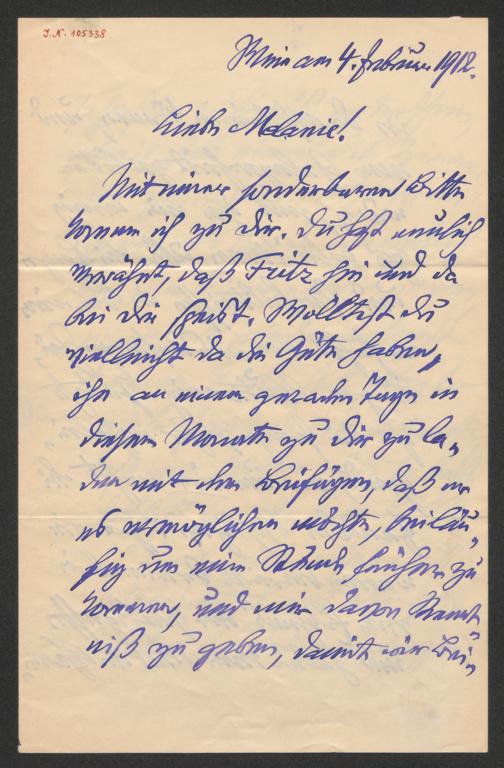 J.N. 105338
Wien am 4. Februar 1912.
Liebe Melanie!
Mit einer sonderbaren Bitte
komme ich zu dir. Du hast neulich
erwähnt, daß Fritz hin und da
bei dir speist. Wolltest du
vielleicht da die Güte haben,
ihn an einem geraden Tage in
diesem Monate zu dir zu la-
den mit dem Beifügen, daß er
es ermöglichen möchte, beiläu-
fig um eine Stunde früher zu
kommen, und mir davon Kennt-
niß zu geben, damit wir bei-